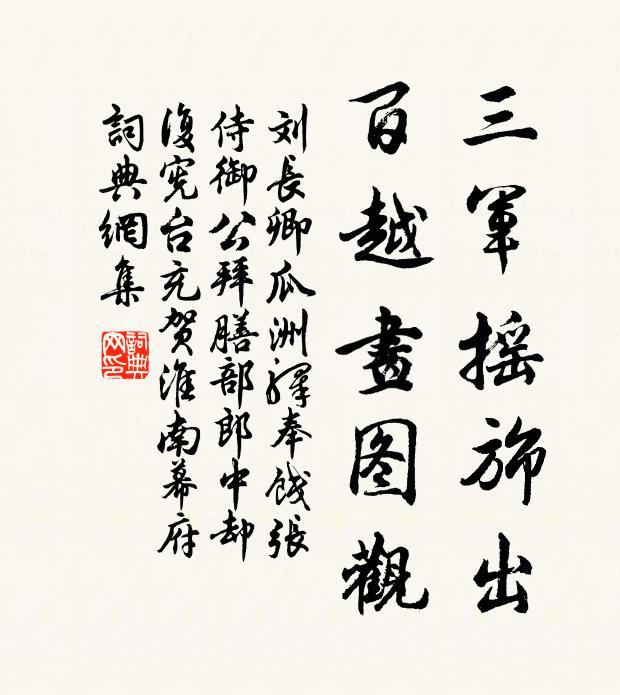 三軍摇旆出
百越畫图觀
刘長卿瓜洲驛奉餞張
侍御公拜膳部郎中却
復宪台充贺淮南幕府
詞典網集
詞典网印